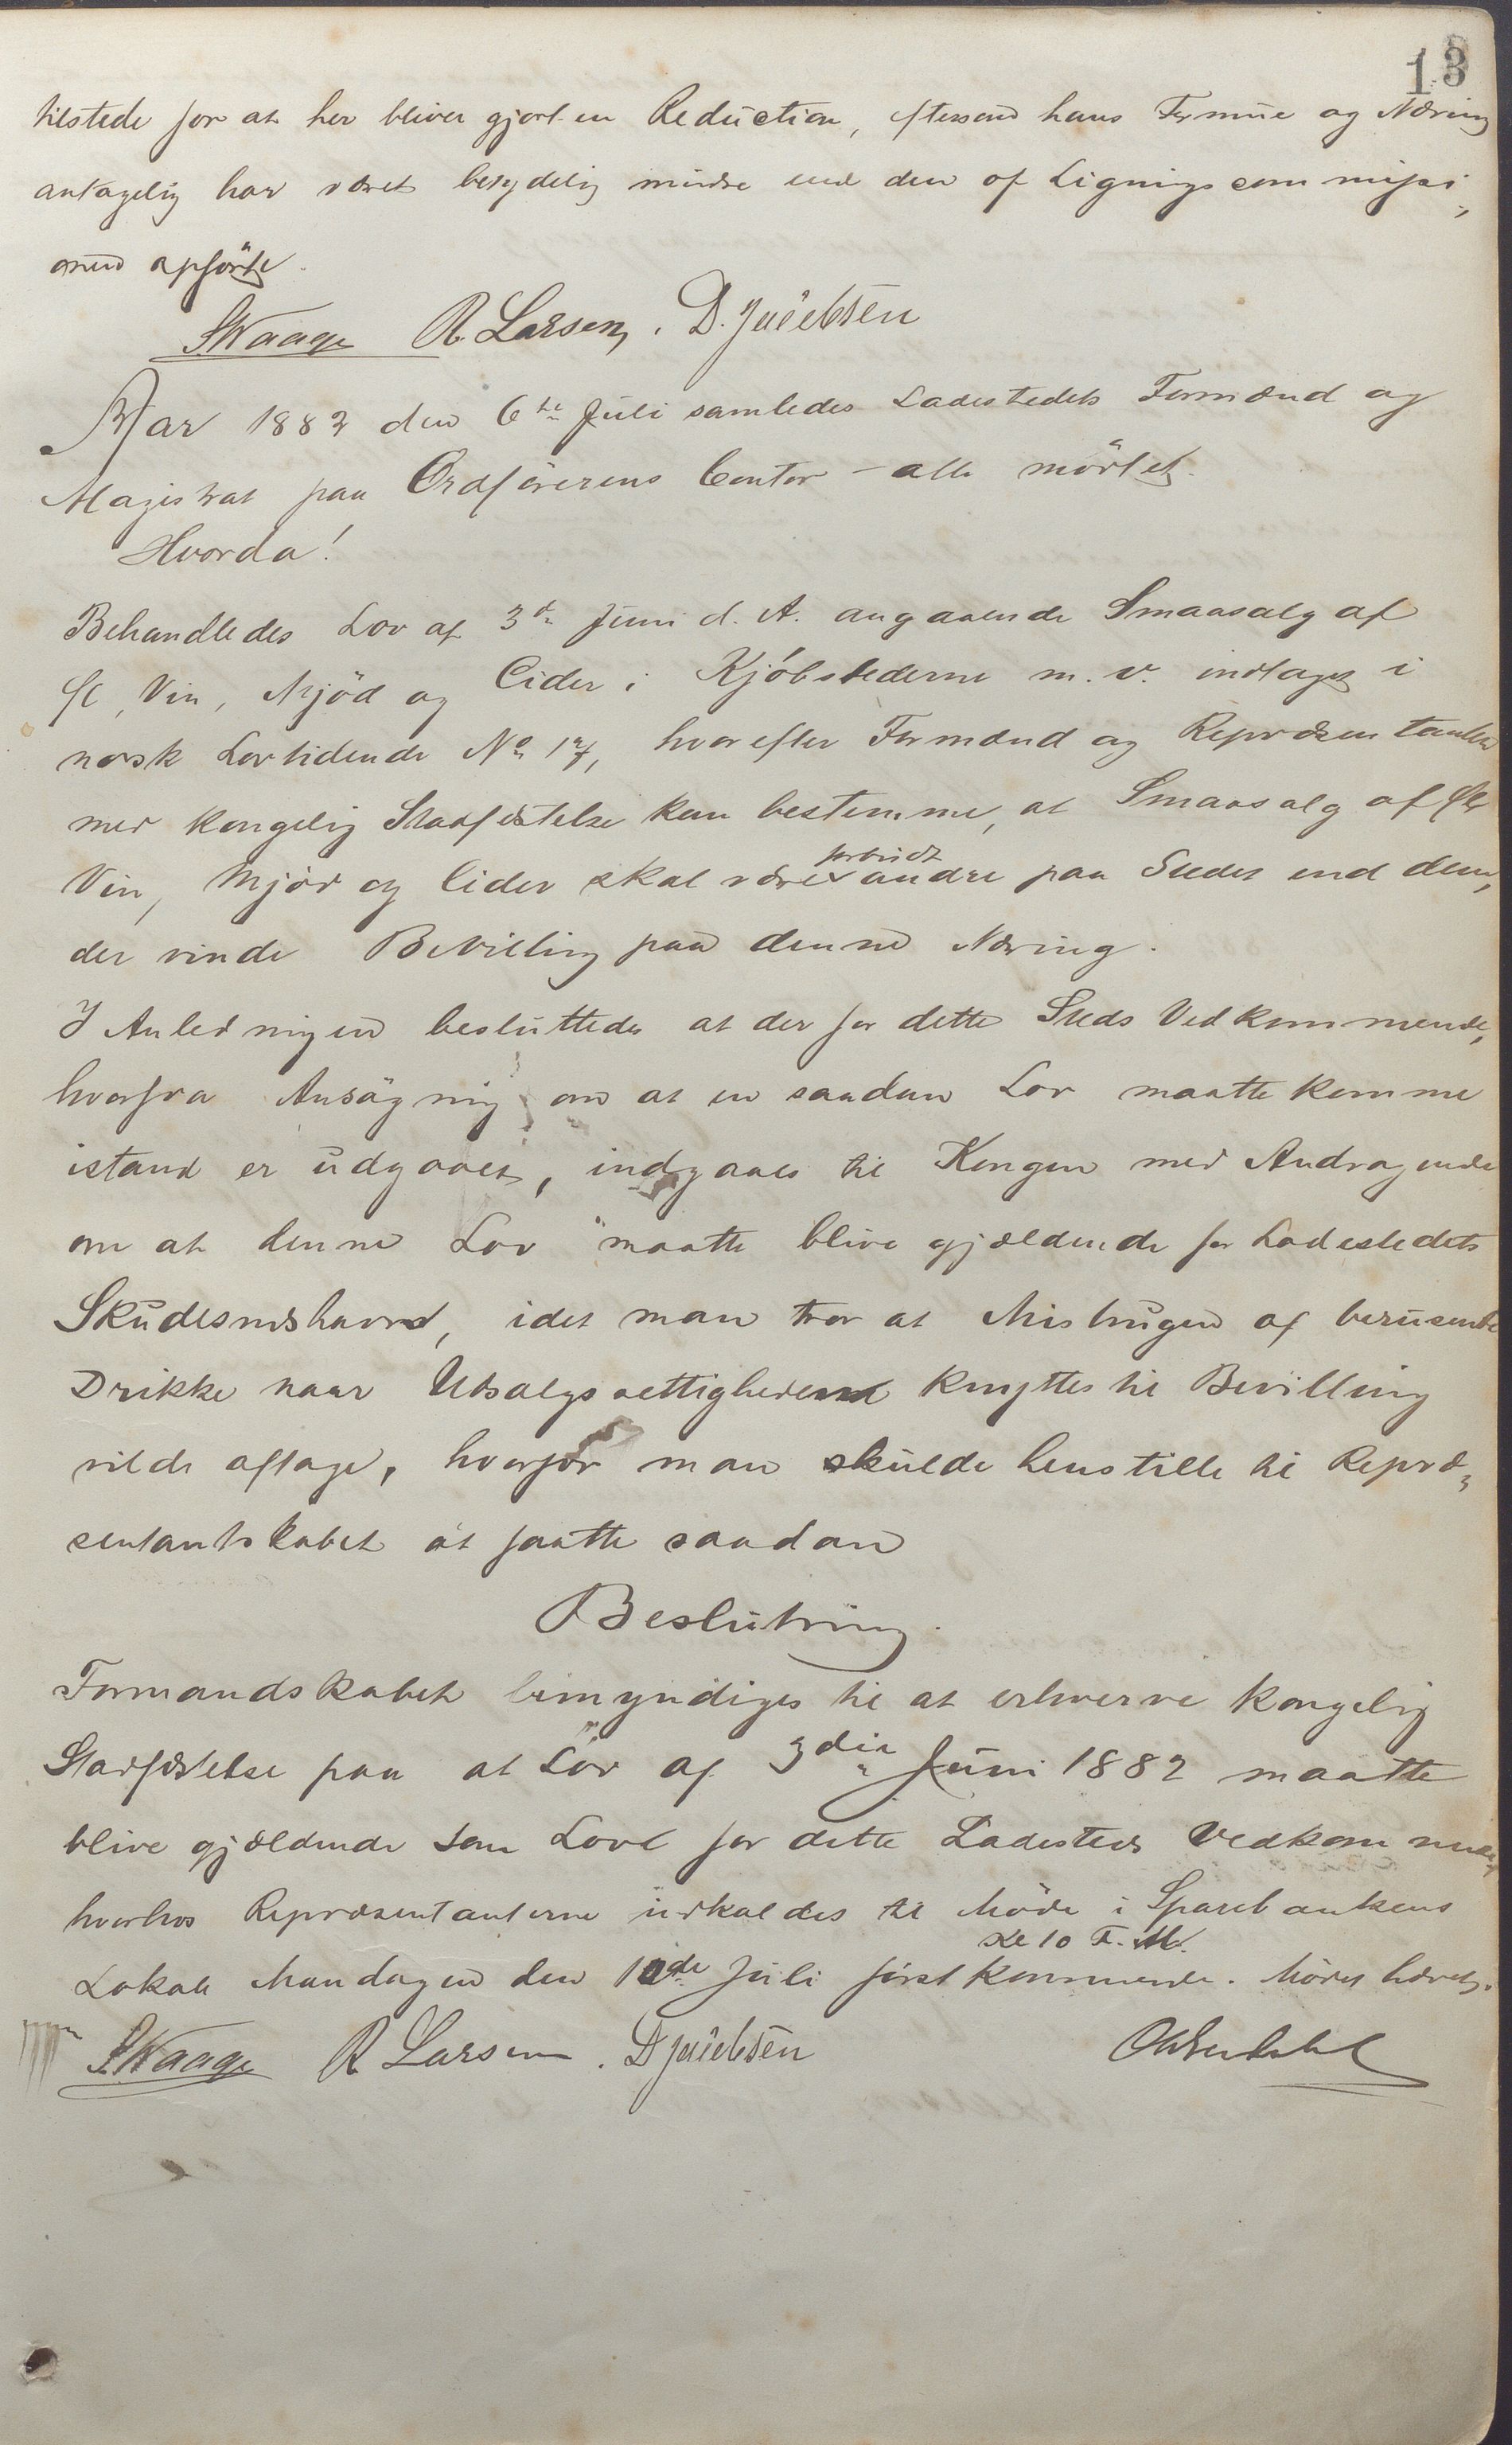 13
tilstede for at her bliver gjort en Reduction, eftersom hans Formue og Næring
antagelig har været betydelig mindre end den af Ligningscommissi-
onen opførte.
R. Larsen, D. Jacobsen
Aar 1882 den 6te Juli samledes Ladestedets Formænd og
Magistrat paa Ordførerens Contor – alle mødtet.
Hvorda!
Behandledes Lov af 3de Juni d. A. angaaende Smaasalg af
Øl, Vin, Mjød og Cider i Kjøbstederne m. v. indtaget i
norsk Lovtidende No 17, hvorefter Formænd og Repræsentanter
med kongelig Stadfæstelse kan bestemme, at Smaasalg af Øl
Vin, Mjød og Cider skal være forbudt andre paa Stedet end dem,
der vinde Bevilling paa denne Næring.
I Anledningen besluttedes at der for dette Steds Vedkommende,
hvorfra Ansøgning om at en saadan Lov maatte komme
istand er udgaaet, indgaaes til Kongen med Andragende
om at denne Lov maatte blive gjældende for Ladestedets
Skudesneshavn, idet man tror at Misbrugen af berusende
Drikke naar Udsalgsrettighederne knyttes til Bevilling
vilde aftage, hvorfor man skulde henstille til Repræ-
sentantskabet at fatte saadan
Beslutning.
Formandskabet bemyndiges til at erhverve kongelig
Stadfæstelse paa at Lov af 3die Juni 1882 maatte
blive gjældende som Lov for dette Ladesteds Vedkommende,
hvorhos Repræsentanterne udkaldes til Møde i Sparebankens
Lokale Mandagen den 10de Juli førstkommende kl 10 F. M. Mødet hævet.
R Larsen. D Jacobsen